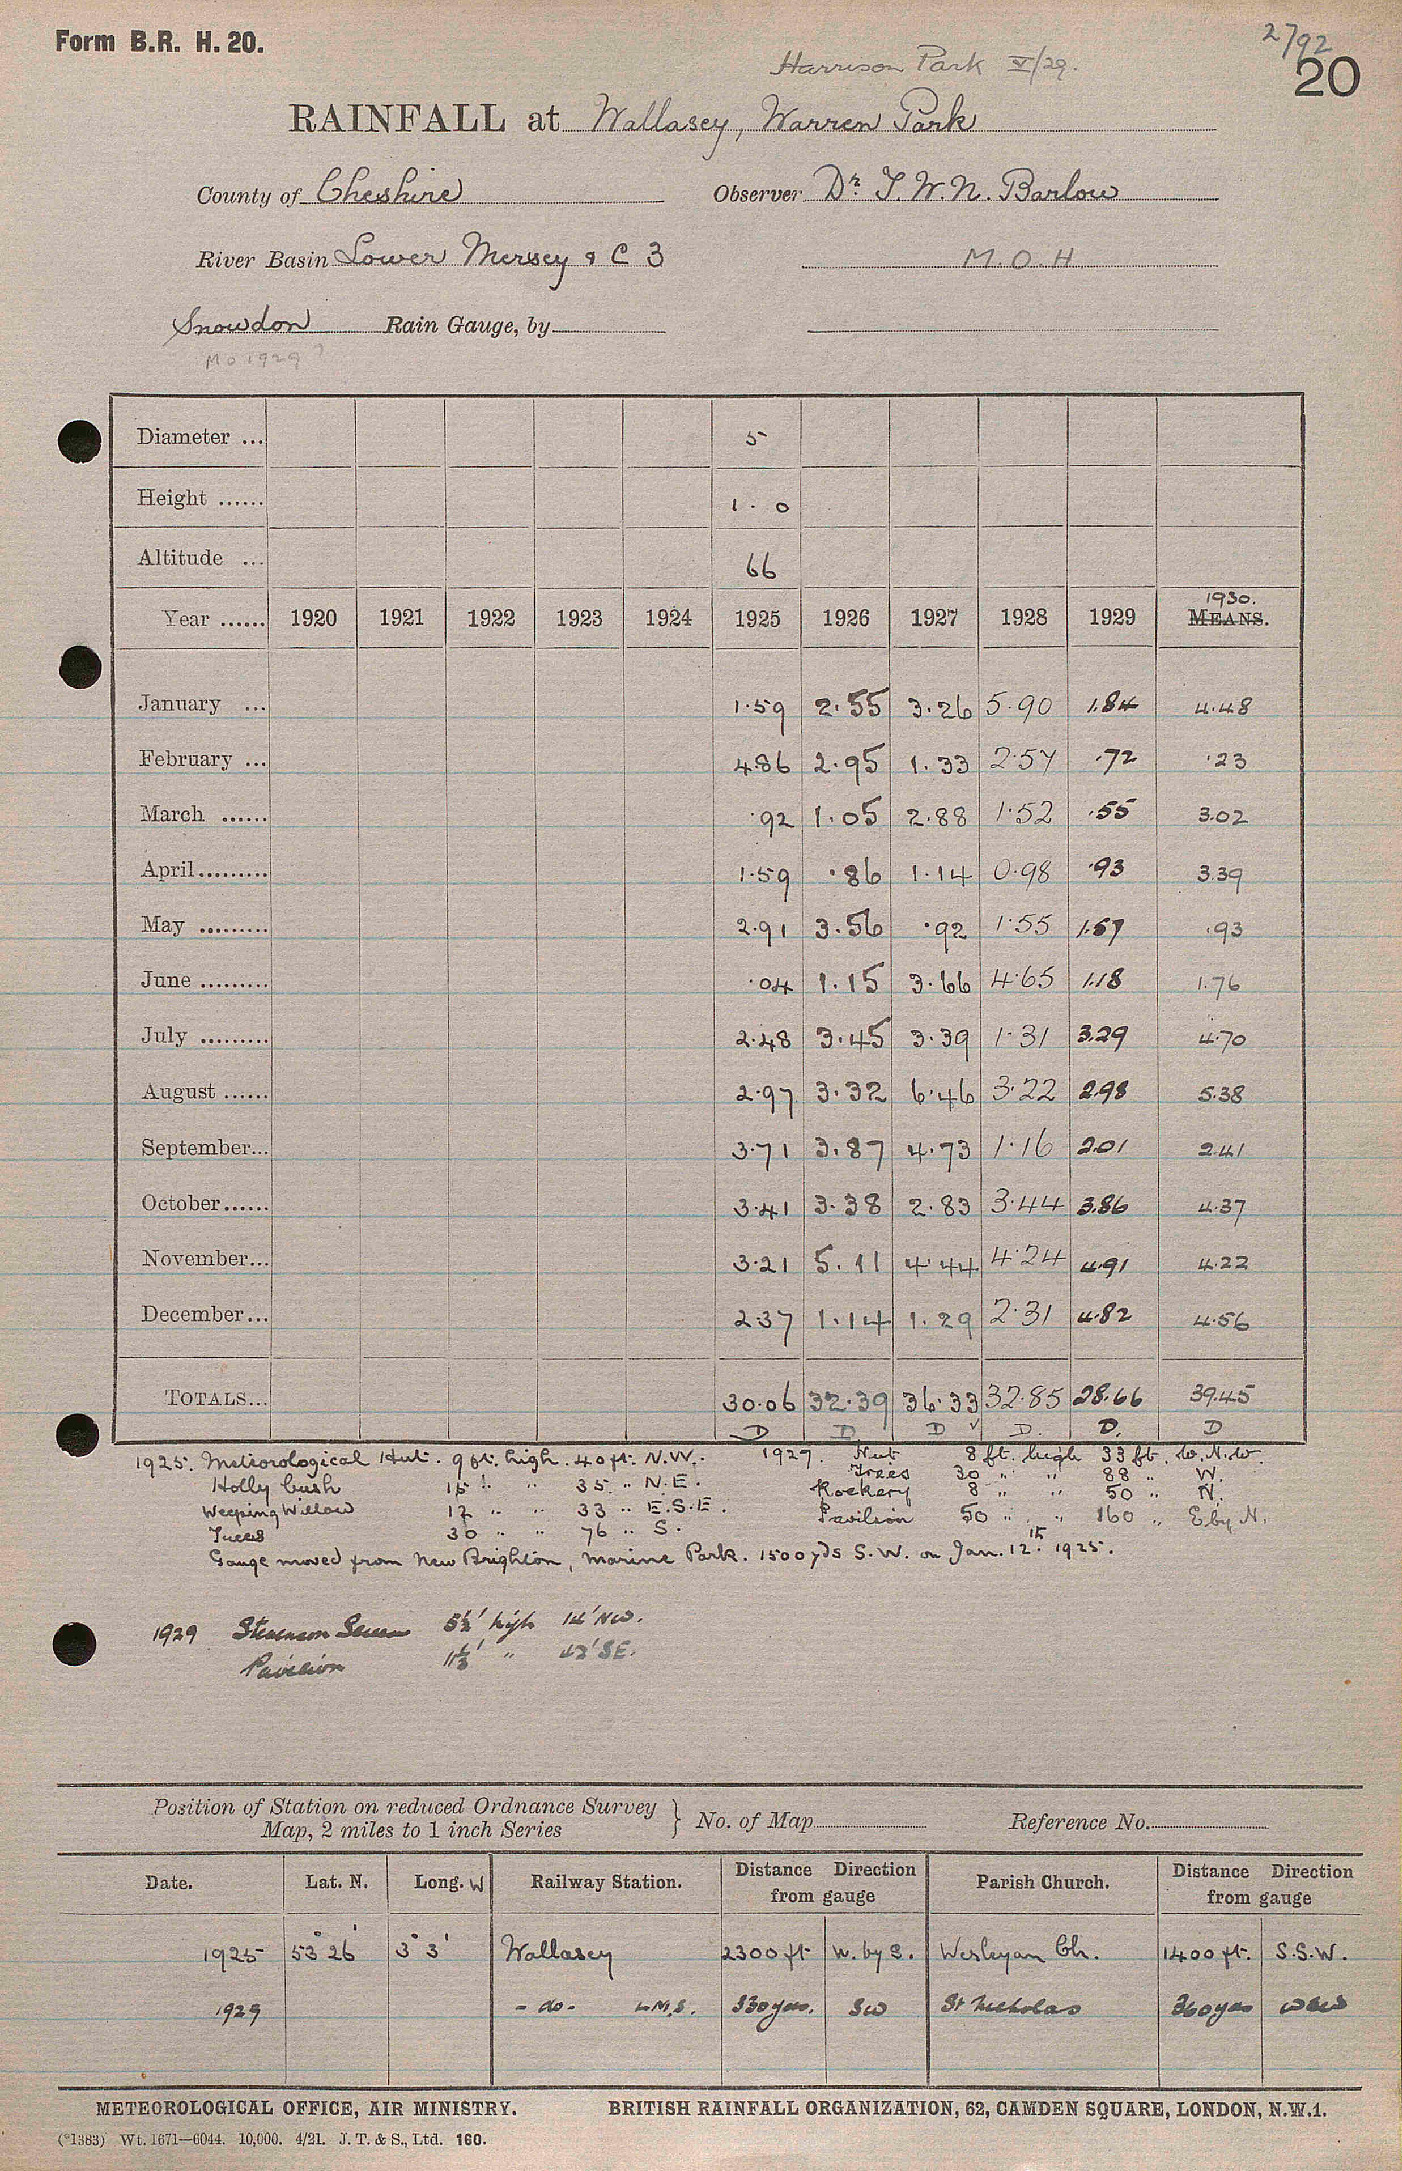 Form B.R. H. 20.
2792
20
Harrison Park V/29.
RAINFALL at Wallasey, Warren Park
County of Cheshire Observer Dr. T. W. N. Barlow
River Basin Lower Mersey & C 3 M.O.H
Snowdon Rain Gauge, by
MO 1929 ?
Diameter ... 5
Height ...... 1 . 0
Altitude ... 66
1930.
Year ...... 1920 1921 1922 1923 1924 1925 1926 1927 1928 1929 MEANS.
January ... 1.59 2.55 3.26 5.90 1.84 4.48
February ... 4.86 2.95 1.33 2.57 .72 .23
March ...... .92 1.05 2.88 1.52 .55 3.02
April......... 1.59 .86 1.14 0.98 .93 3.39
May ......... 2.91 3.56 .92 1.55 1.57 .93
June ......... .04 1.15 3.66 4.65 1.18 1.76
July ......... 2.48 3.45 3.39 1.31 3.29 4.70
August ...... 2.97 3.32 6.46 3.22 2.98 5.38
September... 3.71 3.87 4.73 1.16 2.01 2.41
October...... 3.41 3.38 2.83 3.44 3.86 4.37
November... 3.21 5.11 4.44 4.24 4.91 4.22
December... 2.37 1.14 1.29 2.31 4.82 4.56
TOTALS... 30.06 32.39 36.33 32.85 28.66 39.45
D D D ✓ D. D. D
1925. Meteorological Hut. 9 ft. high. 40 ft. N.W. 1927. Hut 8 ft. high 33 ft. W.N.W.
Holly bush 15 " " 35 " N.E. Trees 30 " " 88 " W.
Weeping Willow 12 " " 33 " E.S.E. Rockery 8 " " 50 " N.
Trees 30 " " 76 " S. Pavilion 50 " " 160 " E by N.
Gauge moved from New Brighton, Marine Park. 1500 yds S.W. on Jan. 12th 1925.
1929 Stevenson Screen 5½' high 14' NW.
Pavilion 11½' " 42' SE.
Position of Station on reduced Ordnance Survey
Map, 2 miles to 1 inch Series } No. of Map Reference No.
Date. Lat. N. Long. W Railway Station. Distance Direction from gauge Parish Church. Distance Direction from gauge
1925 53° 26' 3° 3' Wallasey 2300 ft W. by S. Wesleyan Ch. 1400 ft. S.S.W.
1929 - do - L.M.S. 330 yds. SW St Nicholas 360 yds WSW
METEOROLOGICAL OFFICE, AIR MINISTRY. BRITISH RAINFALL ORGANIZATION, 62, CAMDEN SQUARE, LONDON, N.W.1.
(*1383) Wt. 1671—6044. 10,000. 4/21. J. T. & S., Ltd. 160.